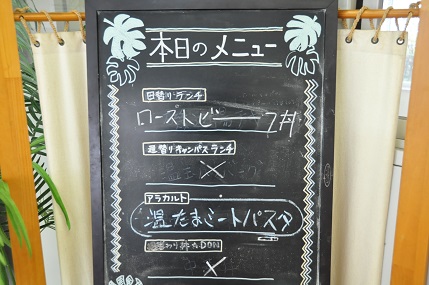 本日のメニュー
日替りランチ
ローストビーフ丼
週替りキャンパスランチ
アラカルト
温たまミートパスタ
DON